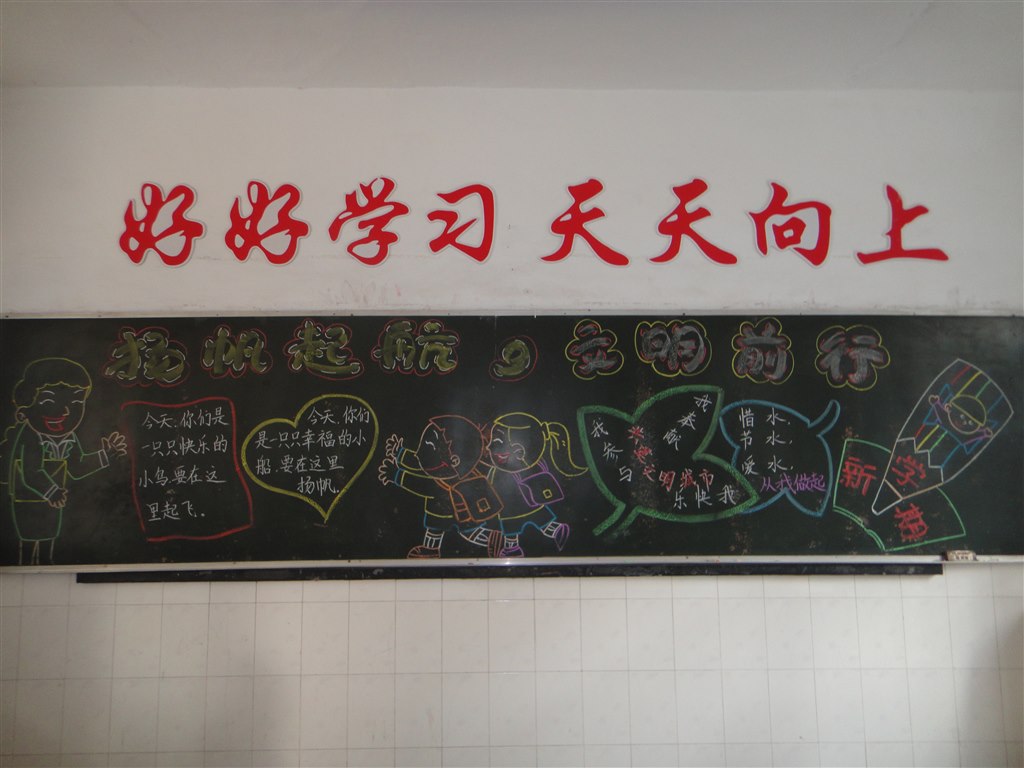 好好学习 天天向上
扬帆起航 立明前行
今天,你们是
一只只快乐的
小鸟,要在这
里起飞。
今天,你们
是一只只幸福的小
船,要在这里
扬帆。
我参与
我奉献
我快乐
惜水,
节水,
爱水,
从我做起
新学期